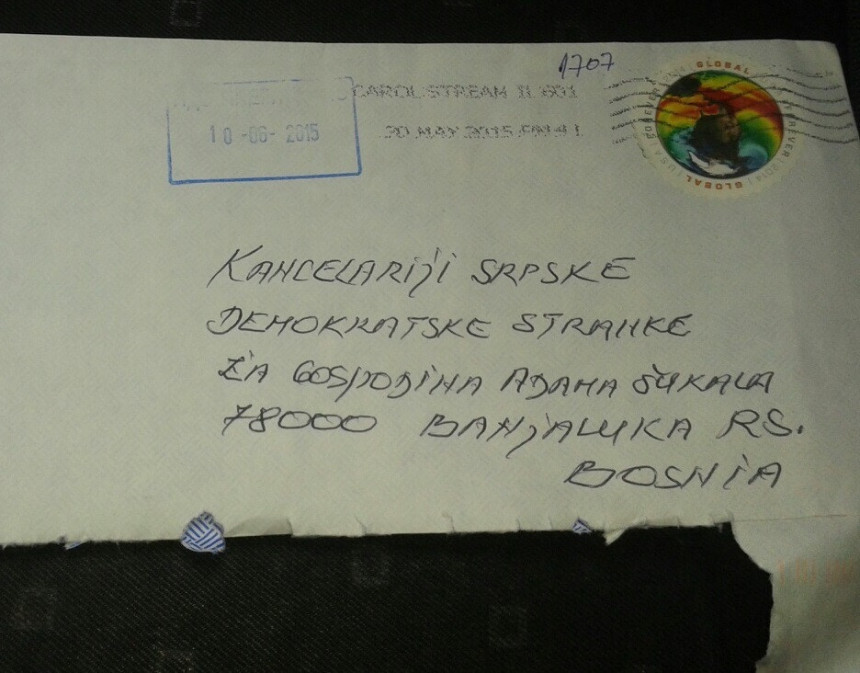 1707
CAROL STREAM IL 601
20 MAY 2015 PM 4 L
10 -06- 2015
GLOBAL
FOREVER
GLOBAL
KANCELARIJI SRPSKE
DEMOKRATSKE STRANKE
ZA GOSPODINA ADAMA ŠUKALA
78000 BANJALUKA RS.
BOSNIA